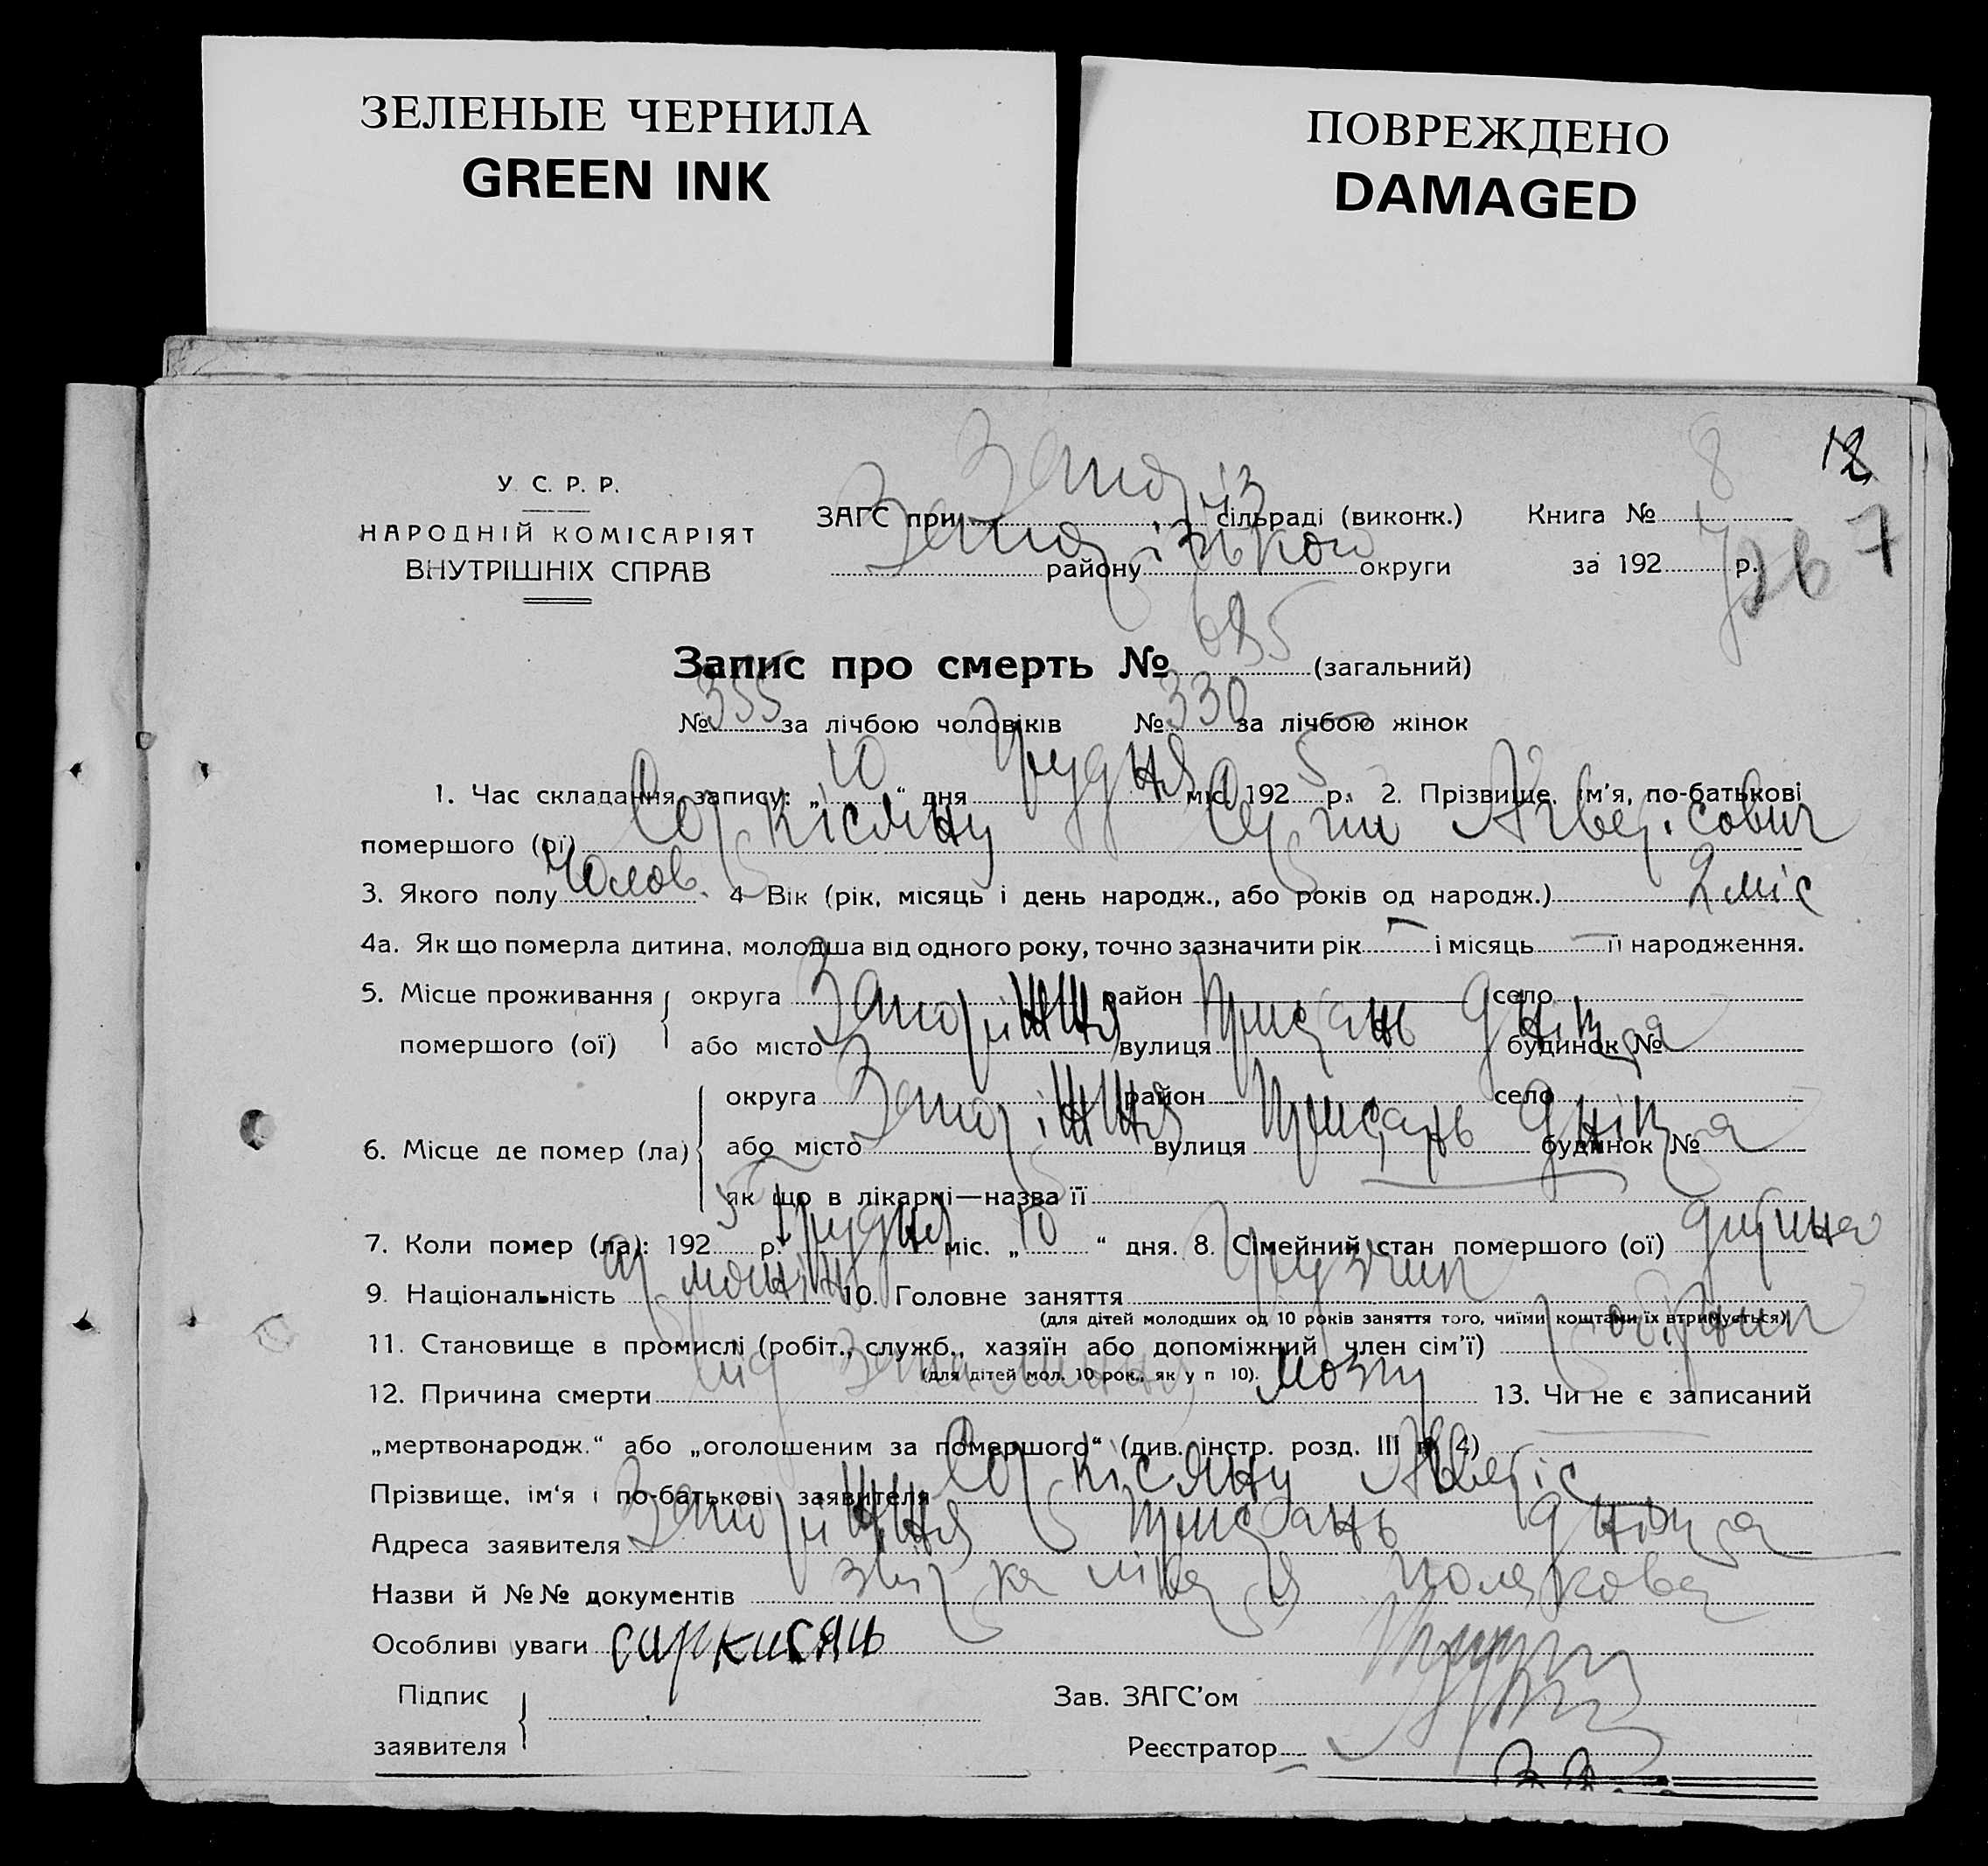 ЗЕЛЕНЫЕ ЧЕРНИЛА
GREEN INK
ПОВРЕЖДЕНО
DAMAGED
8 12
У. С. Р. Р.
НАРОДНІЙ КОМІСАРІЯТ
ВНУТРІШНІХ СПРАВ
ЗАГС при Запоріз сільраді (виконк.) Книга №
району Запорізького округи за 192 р. 7
Запис про смерть № 685 (загальний)
№ 355 за лічбою чоловіків № 330 за лічбою жінок
1. Час складання запису: „ 10 “ дня Грудня міс. 192 5 р. 2. Прізвище, ім’я, по-батькові
помершого (ої) Саркісянц
3. Якого полу Чолов. 4 Вік (рік, місяць і день народж., або років од народж.) 2 міс
4а. Як що померла дитина, молодша від одного року, точно зазначити рік — і місяць — її народження.
5. Місце проживання помершого (ої) округа район село
або місто Запоріжжя вулиця Пристань Дніпра будинок №
6. Місце де помер (ла) округа район село
або місто Запоріжжя вулиця Пристань Дніпра будинок №
як що в лікарні—назва її
7. Коли помер (ла): 192 5 р. Грудня міс. „ 10 “ дня. 8. Сімейний стан помершого (ої) дитина
9. Національність 10. Головне заняття Грузчик
(для дітей молодших од 10 років заняття того, чиїми коштами їх втримується)
11. Становище в промислі (робіт., служб., хазяїн або допоміжний член сім’ї) робітник
(для дітей мол. 10 рок., як у п 10).
12. Причина смерти від запалення мозку 13. Чи не є записаний
„мертвонародж.“ або „оголошеним за помершого“ (див. інстр. розд. III п. 4)
Прізвище, ім‘я і по-батькові заявителя Саркісянц Аверіс
Адреса заявителя Запоріжжя Пристань Дніпра
Назви й №№ документів лікаря Полякова
Особливі уваги саркисянц
Підпис
заявителя
Зав. ЗАГС’ом
Реєстратор